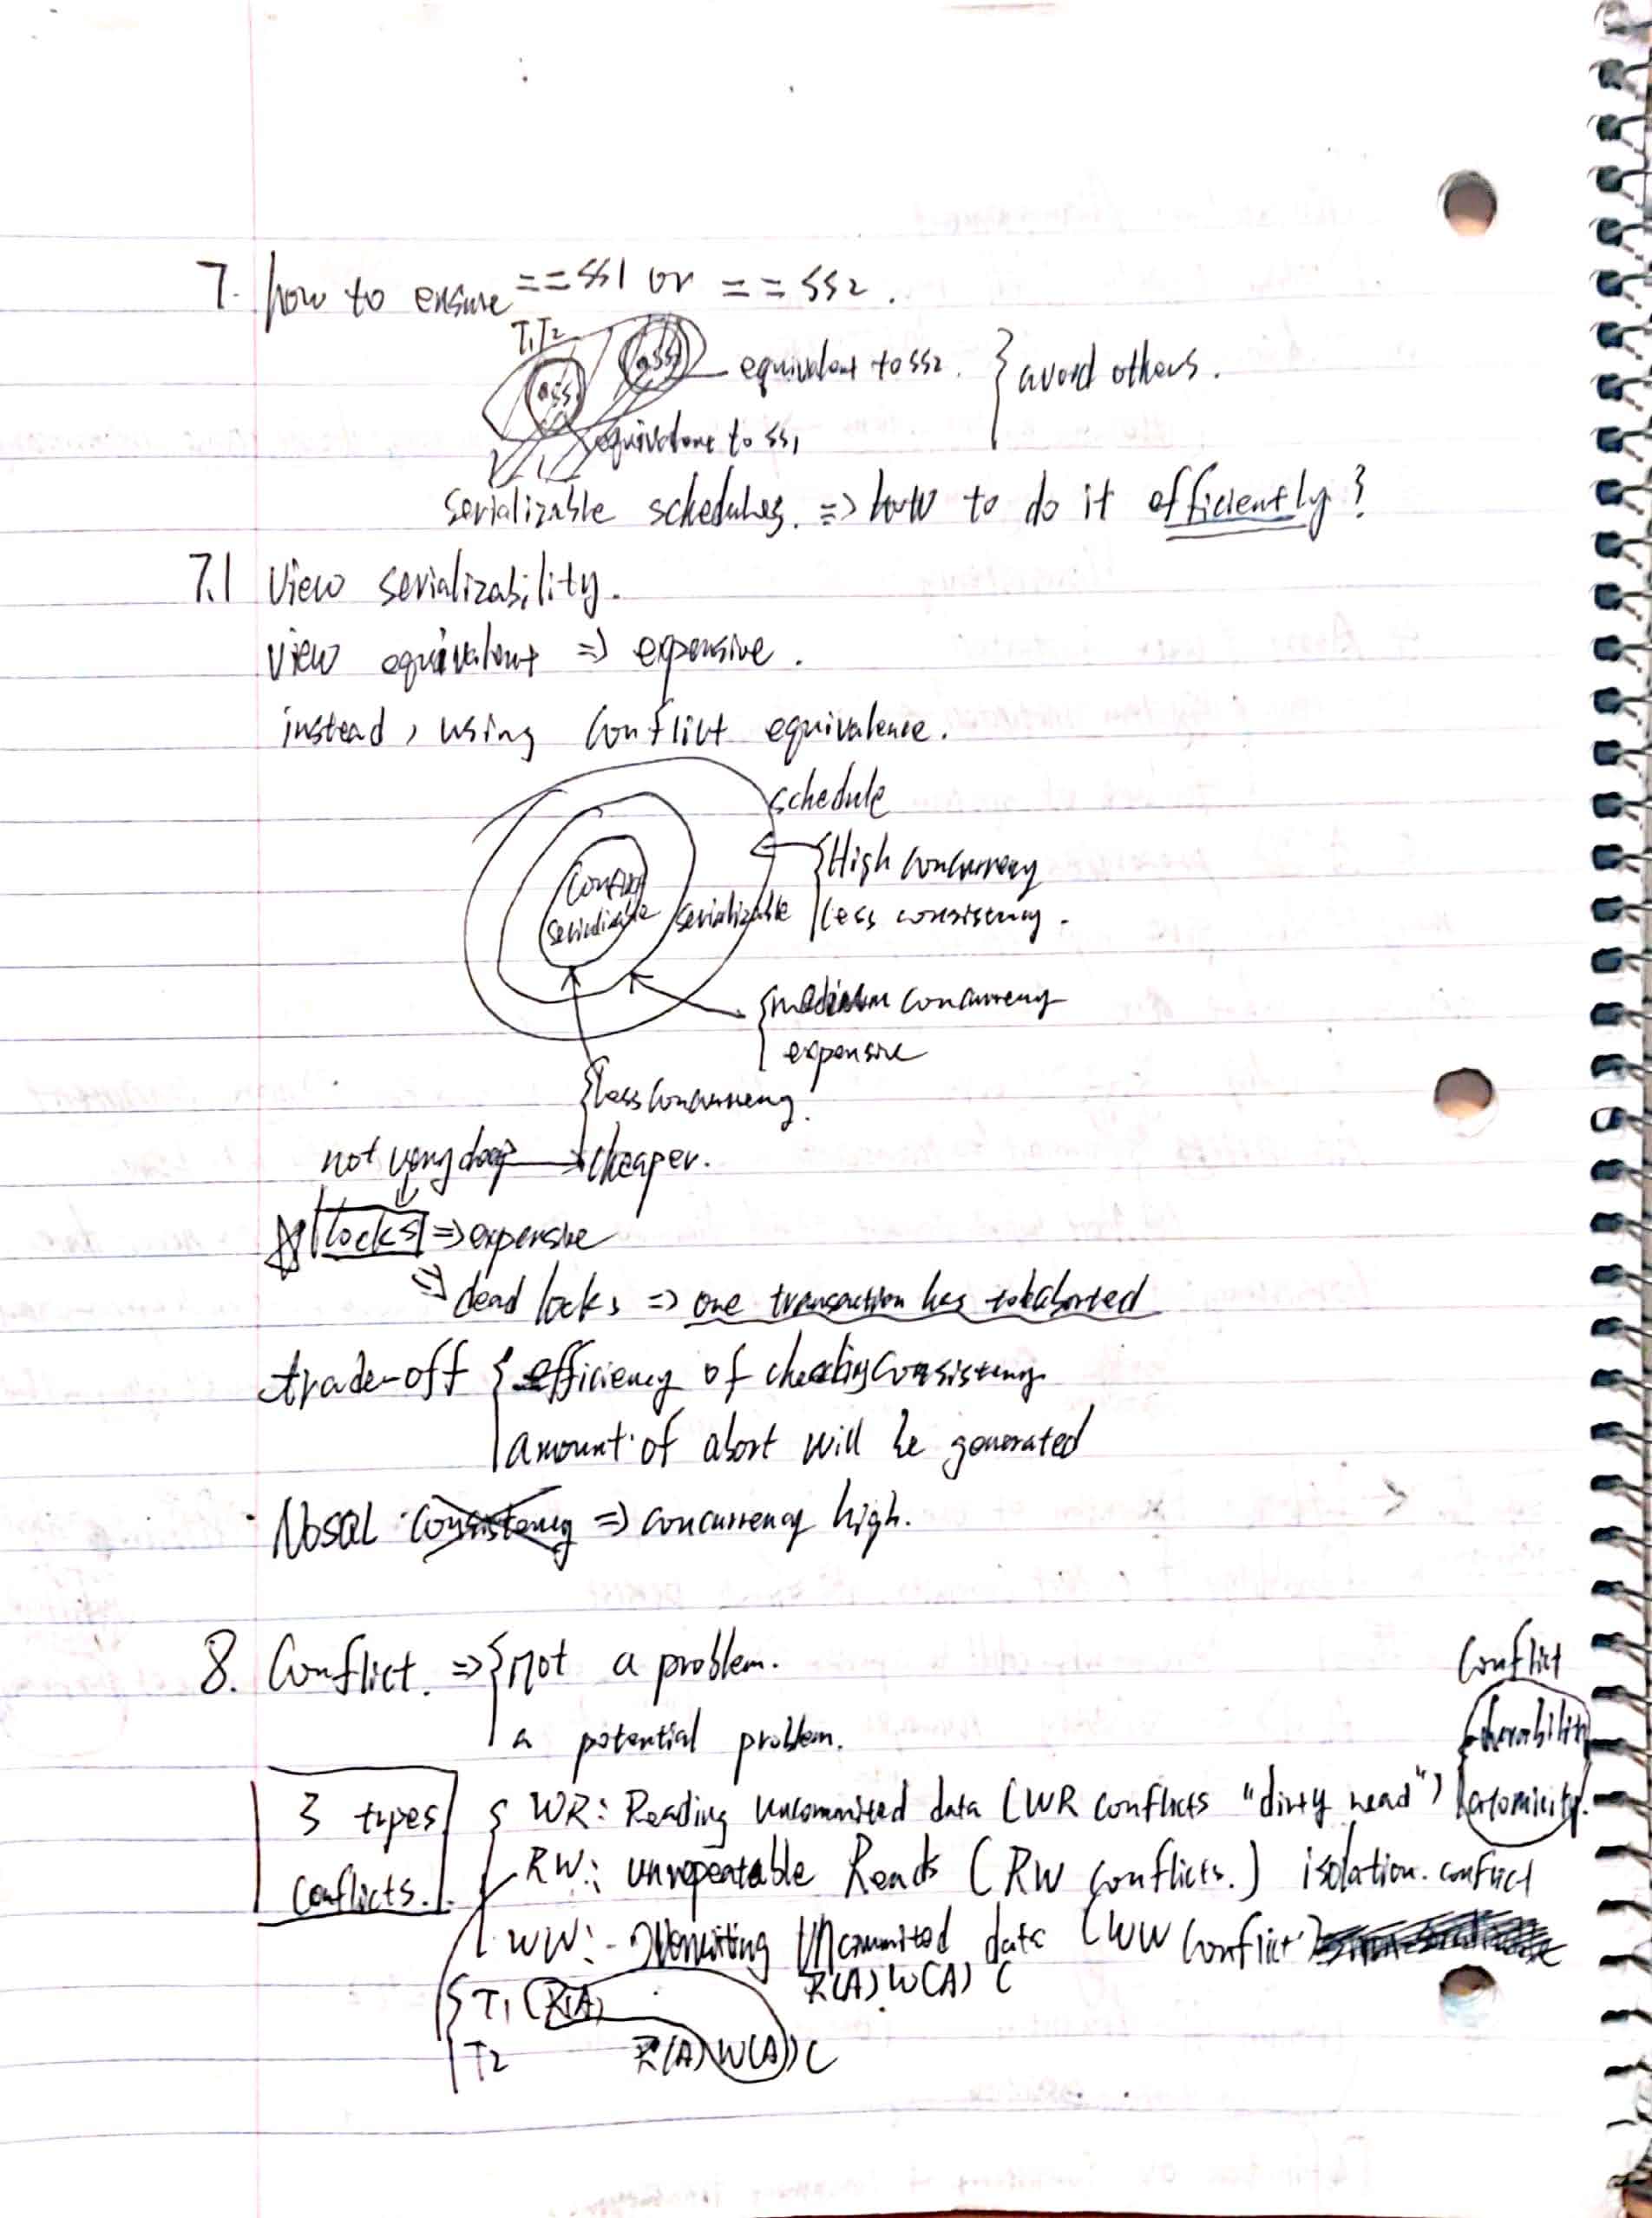 7. how to ensure ==SS1 or ==SS2.
T1T2
SS1
SS2
equivalent to SS2.
avoid others.
equivalent to SS1
Serializable schedules. => how to do it efficiently?
7.1 View serializability.
View equivalent => expensive.
instead, using Conflict equivalence.
schedule
High concurrency
less consistency.
Conflict
serializable
serializable
medium concurrency
expensive
less concurrency.
not very deep → cheaper.
locks => expensive
=> dead locks => one transaction has to be aborted
trade-off { efficiency of checking consistency
amount of abort will be generated
NoSQL Consistency => concurrency high.
8. Conflict. => { not a problem.
a potential problem.
Conflict
durability
atomicity.
3 types
conflicts.
WR: Reading uncommited data (WR conflicts "dirty read")
RW: unrepeatable Reads (RW conflicts.) isolation. conflict
WW: - Overwriting Uncommited data (WW conflict)
T1 (R(A) R(A) W(A) C
T2 R(A) W(A)) C